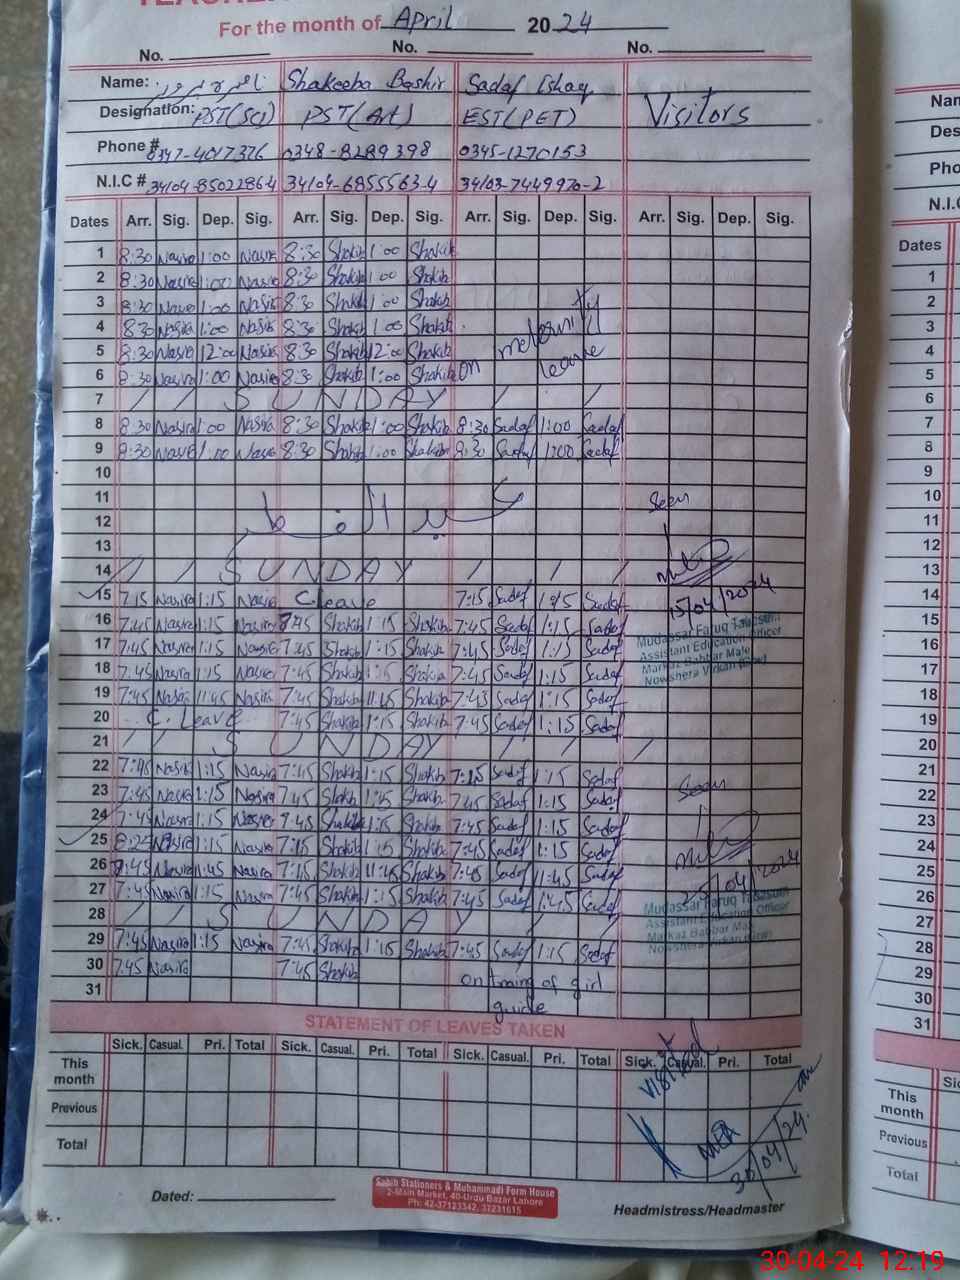 For the month of April 2024
No. No. No.
Name: Shakeeba Bashir Sadaf Ishaq
Designation: PST(Sci) PST(Art) EST(PET) Visitors
Phone # 0347-4017376 0348-8289398 0345-1270153
N.I.C # 34104-8502286-4 34104-6855563-4 34103-7449970-2
Dates Arr. Sig. Dep. Sig. Arr. Sig. Dep. Sig. Arr. Sig. Dep. Sig. Arr. Sig. Dep. Sig.
1 8:30 Nasira 1:00 Nasira 8:30 Shakib 1:00 Shakib
2 8:30 Nasira 1:00 Nasira 8:30 Shakib 1:00 Shakib
3 8:30 Nasira 1:00 Nasira 8:30 Shakib 1:00 Shakib
4 8:30 Nasira 1:00 Nasira 8:30 Shakib 1:00 Shakib
5 8:30 Nasira 12:00 Nasira 8:30 Shakib 12:00 Shakib
6 8:30 Nasira 1:00 Nasira 8:30 Shakib 1:00 Shakib on leave
7 SUNDAY
8 8:30 Nasira 1:00 Nasira 8:30 Shakib 1:00 Shakib 8:30 Sadaf 1:00 Sadaf
9 8:30 Nasira 1:00 Nasira 8:30 Shakib 1:00 Shakib 8:30 Sadaf 1:00 Sadaf
10
11 Seen
12 عید الفطر
13
14 SUNDAY
15 7:15 Nasira 1:15 Nasira C leave 7:15 Sadaf 1:15 Sadaf 15/04/2024
16 7:45 Nasira 1:15 Nasira 7:45 Shakib 1:15 Shakib 7:45 Sadaf 1:15 Sadaf
Mudassar Faruq Tabasum
Assistant Education Officer
Markaz Babbar Male
Nowshera Virkan
17 7:45 Nasira 1:15 Nasira 7:45 Shakib 1:15 Shakib 7:45 Sadaf 1:15 Sadaf
18 7:45 Nasira 1:15 Nasira 7:45 Shakib 1:15 Shakib 7:45 Sadaf 1:15 Sadaf
19 7:45 Nasira 11:45 Nasira 7:45 Shakib 11:45 Shakib 7:45 Sadaf 1:15 Sadaf
20 C. Leave 7:45 Shakib 1:15 Shakib 7:45 Sadaf 1:15 Sadaf
21 SUNDAY
22 7:45 Nasira 1:15 Nasira 7:45 Shakib 1:15 Shakib 7:45 Sadaf 1:15 Sadaf
23 7:45 Nasira 1:15 Nasira 7:45 Shakib 1:15 Shakib 7:45 Sadaf 1:15 Sadaf Seen
24 7:45 Nasira 1:15 Nasira 7:45 Shakib 1:15 Shakib 7:45 Sadaf 1:15 Sadaf
25 8:25 Nasira 1:15 Nasira Shakib 1:15 Shakib 7:45 Sadaf 1:15 Sadaf
26 7:45 Nasira 11:45 Nasira 7:45 Shakib 11:45 Shakib 7:45 Sadaf 11:45 Sadaf 25/04/2024
27 7:45 Nasira 1:15 Nasira 7:45 Shakib 1:15 Shakib 7:45 Sadaf 1:45 Sadaf
Mudassar Faruq Tabasum
Assistant Education Officer
Markaz Babbar Male
Nowshera Virkan
28 SUNDAY
29 7:45 Nasira 1:15 Nasira 7:45 Shakib 1:15 Shakib 7:45 Sadaf 1:15 Sadaf
30 7:45 Nasira 7:45 Shakib
31 of girl
guide
STATEMENT OF LEAVES TAKEN
Sick. Casual. Pri. Total Sick. Casual. Pri. Total Sick. Casual. Pri. Total Sick. Casual. Pri. Total
This month
Visited
Previous
Total
30/04/24
Dated:
Sabib Stationers & Muhammadi Form House
2-Main Market, 40-Urdu Bazar Lahore
Ph: 42-37123342, 37231615
Headmistress/Headmaster
N.I.C
Dates
1
2
3
4
5
6
7
8
9
10
11
12
13
14
15
16
17
18
19
20
21
22
23
24
25
26
27
28
29
30
31
This month
Previous
Total
30-04-24 12:19